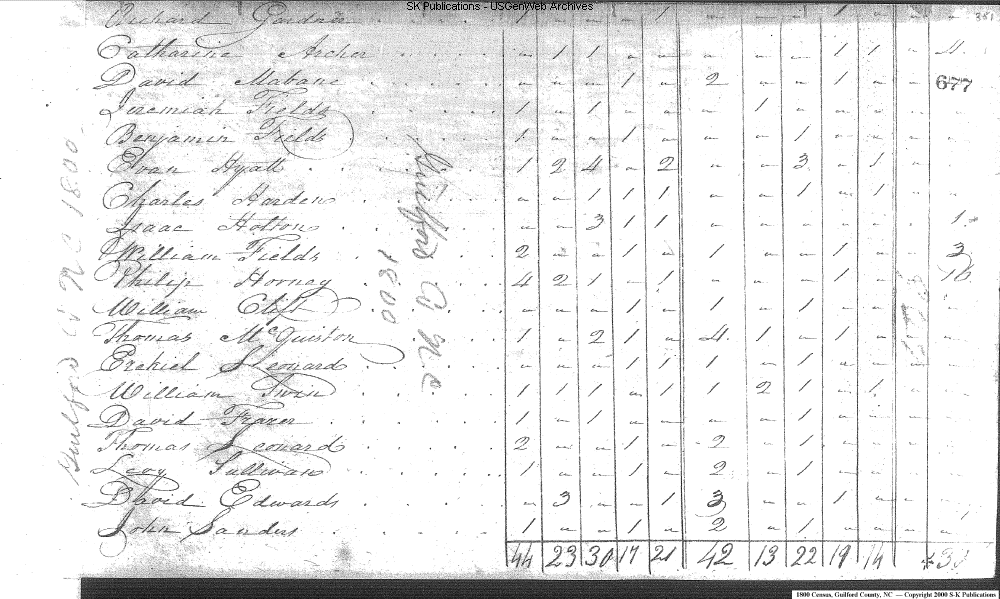 SK Publications - USGenWeb Archives
Richard Gardner 351
Catharine Archer - 1 1 - - - - - 1 1 -
David Mabane 1 - - 1 - 2 - - 1 - - 677
Jeremiah Fields 1 - 1 - - - 1 - - - -
Benjamin Fields 1 - - 1 - - - 1 - - -
Evan Hyatt 1 2 4 - 2 - - 3 - 1 -
Charles Harden - - 1 1 1 - - 1 - 1 -
Isaac Holton - - 3 1 1 - - - - - - 1
William Fields 2 - - 1 - 1 - - 1 - - 3
Philip Horney 4 2 1 - 1 - - - 1 - - 16
William Clift - - - 1 - 1 - 1 - - -
Thomas McQuiston 1 - 2 1 - 4 1 - 1 - -
Ezekiel Leonard - - - 1 1 1 - 1 - - -
William 1 1 1 - 1 1 2 1 - 1 -
David Frazer 1 - 1 - - - - 1 - - -
Thomas Leonard 2 - - 1 - 2 - 1 - - -
Levy Sullivan 1 - - 1 - 2 - 1 - - -
David Edwards - 3 - - 1 3 - - 1 - -
John Sanders 1 - - 1 - 2 - 1 - - -
44 23 30 17 21 42 13 22 19 14
Guilford Co N C 1800
Guilford Co N C
1800
1800 Census, Guilford County, NC — Copyright 2000 S-K Publications